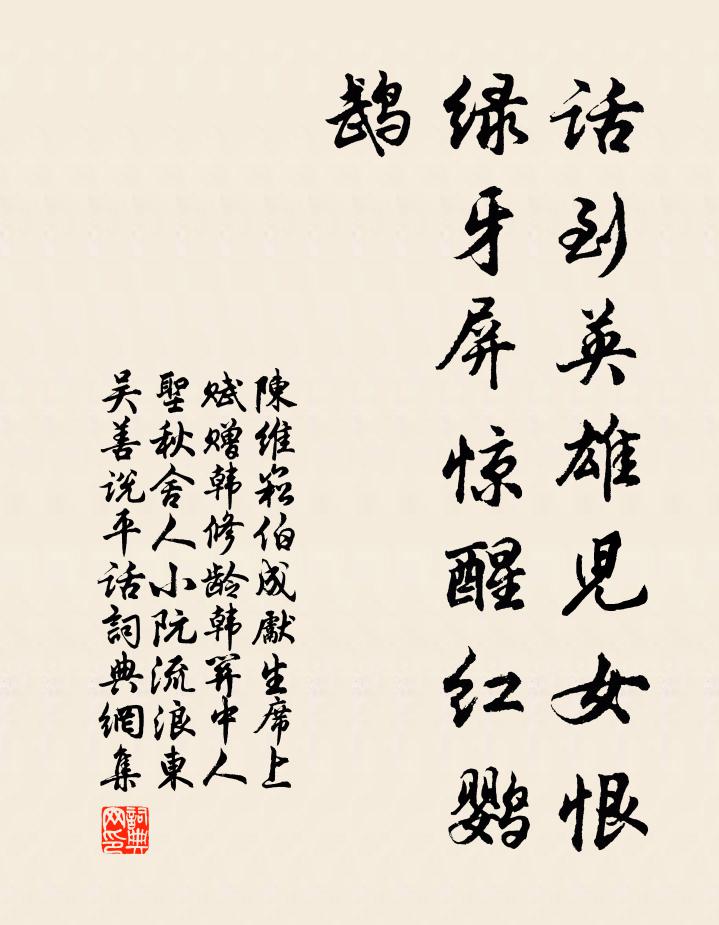 话到英雄児女恨
绿牙屏惊醒红鹦
鹉
陳维崧伯成獻生席上
赋赠韩修龄韩関中人
聖秋舍人小阮流浪東
吴善说平话詞典網集
詞典网印